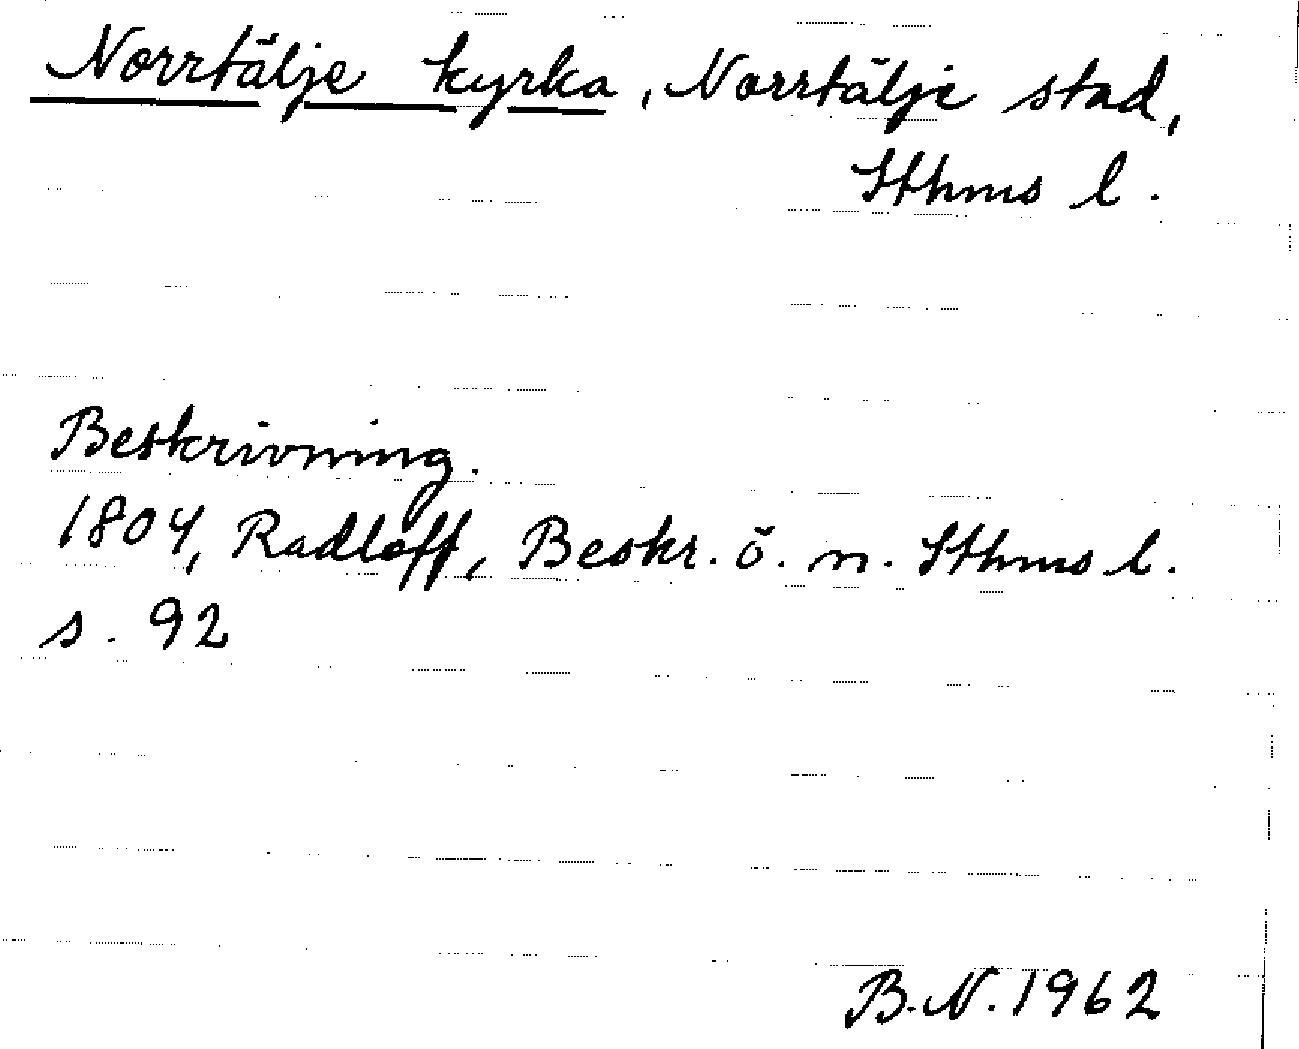 Norrtälje kyrka, Norrtälje stad,
Sthms l.
Beskrivning.
1804, Radloff, Beskr. ö. n. Sthms l.
s. 92
B.N. 1962